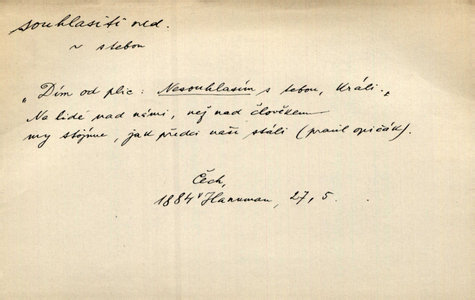 souhlasiti ned.
~ s tebou
„Dím od plic: Nesouhlasím s tebou, Králi.„
Na lidé nad námi, než nad člověkem
my stůjme, jak předci naši stáli (pravil opičák).
Čech,
1884 v Hanuman, 27, 5.